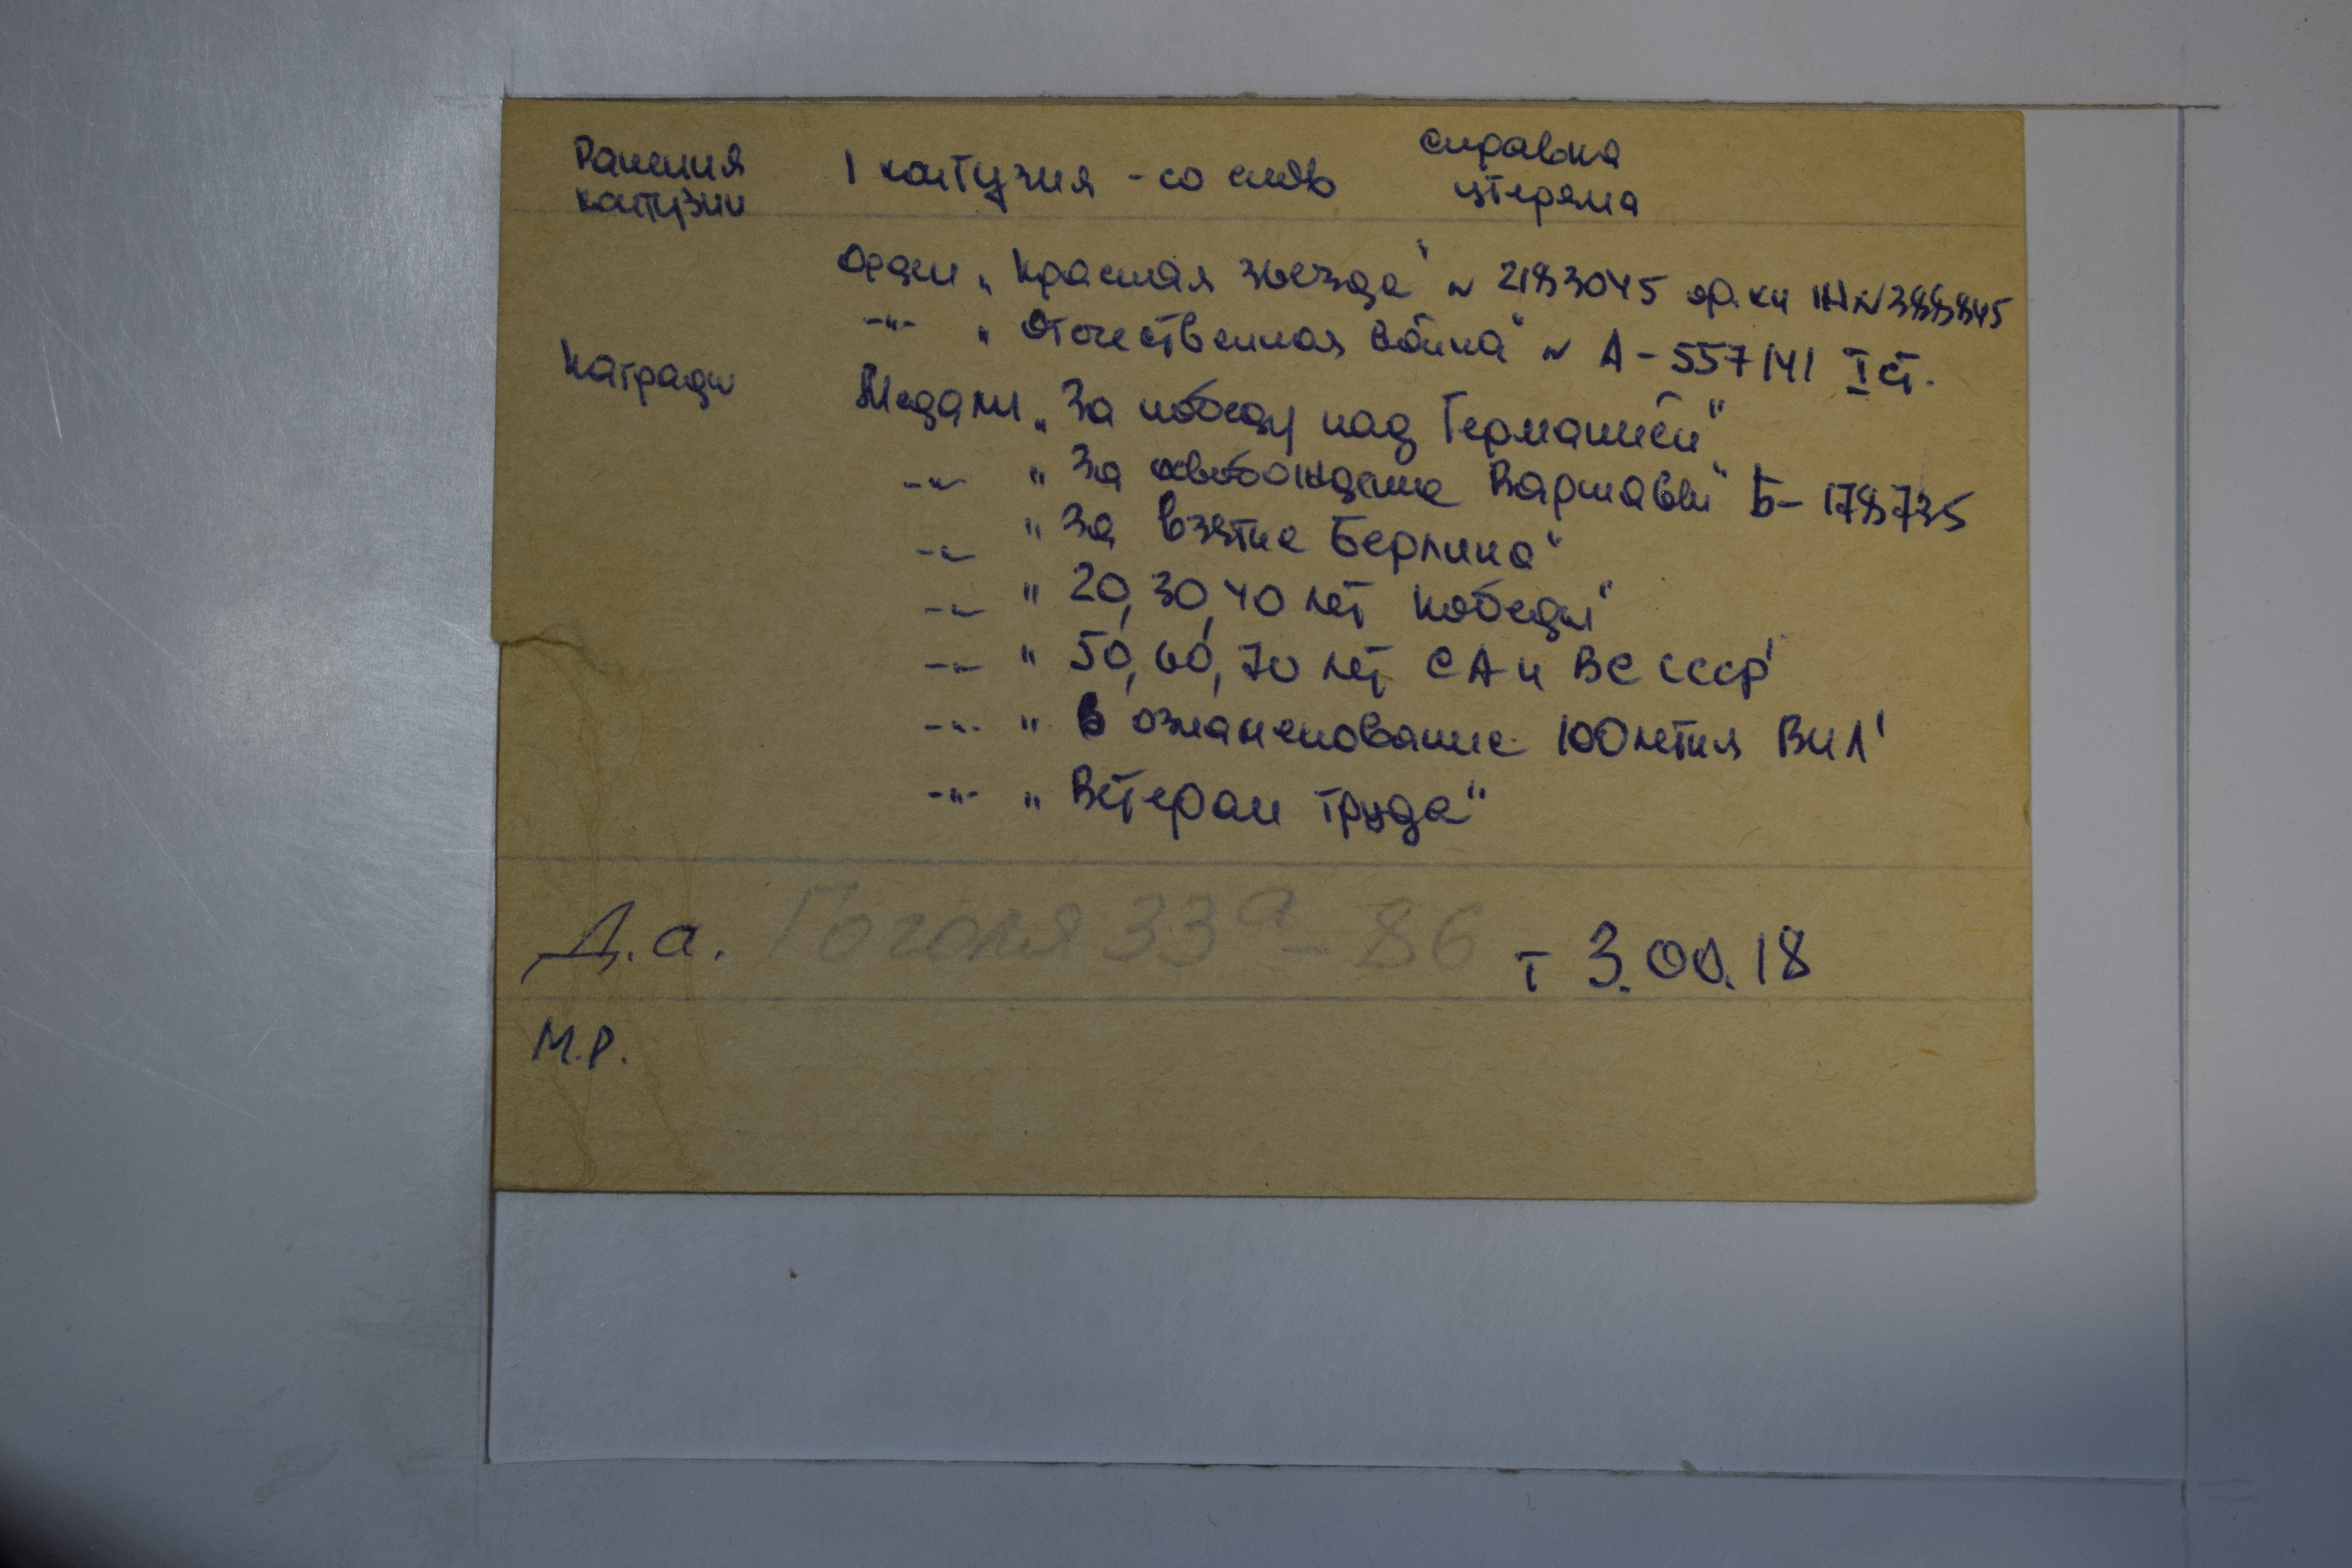 Ранения 1 контузия - со слов справка
контузии утеряна
Орден „Красная звезда" № 2183045 ор. кн № 388845
-"- „Отечественная война" № А-557141 I ст.
Награды Медали „За победу над Германией"
-"- "За освобождение Варшавы" Б-178735
-"- "За взятие Берлина"
-"- "20, 30, 40 лет победы"
-"- "50, 60, 70 лет СА и ВС СССР"
-"- "В ознаменование 100летия ВИЛ"
-"- "Ветеран труда"
Д.а. Гоголя 33а - 86 т 3.00.18
М.Р.